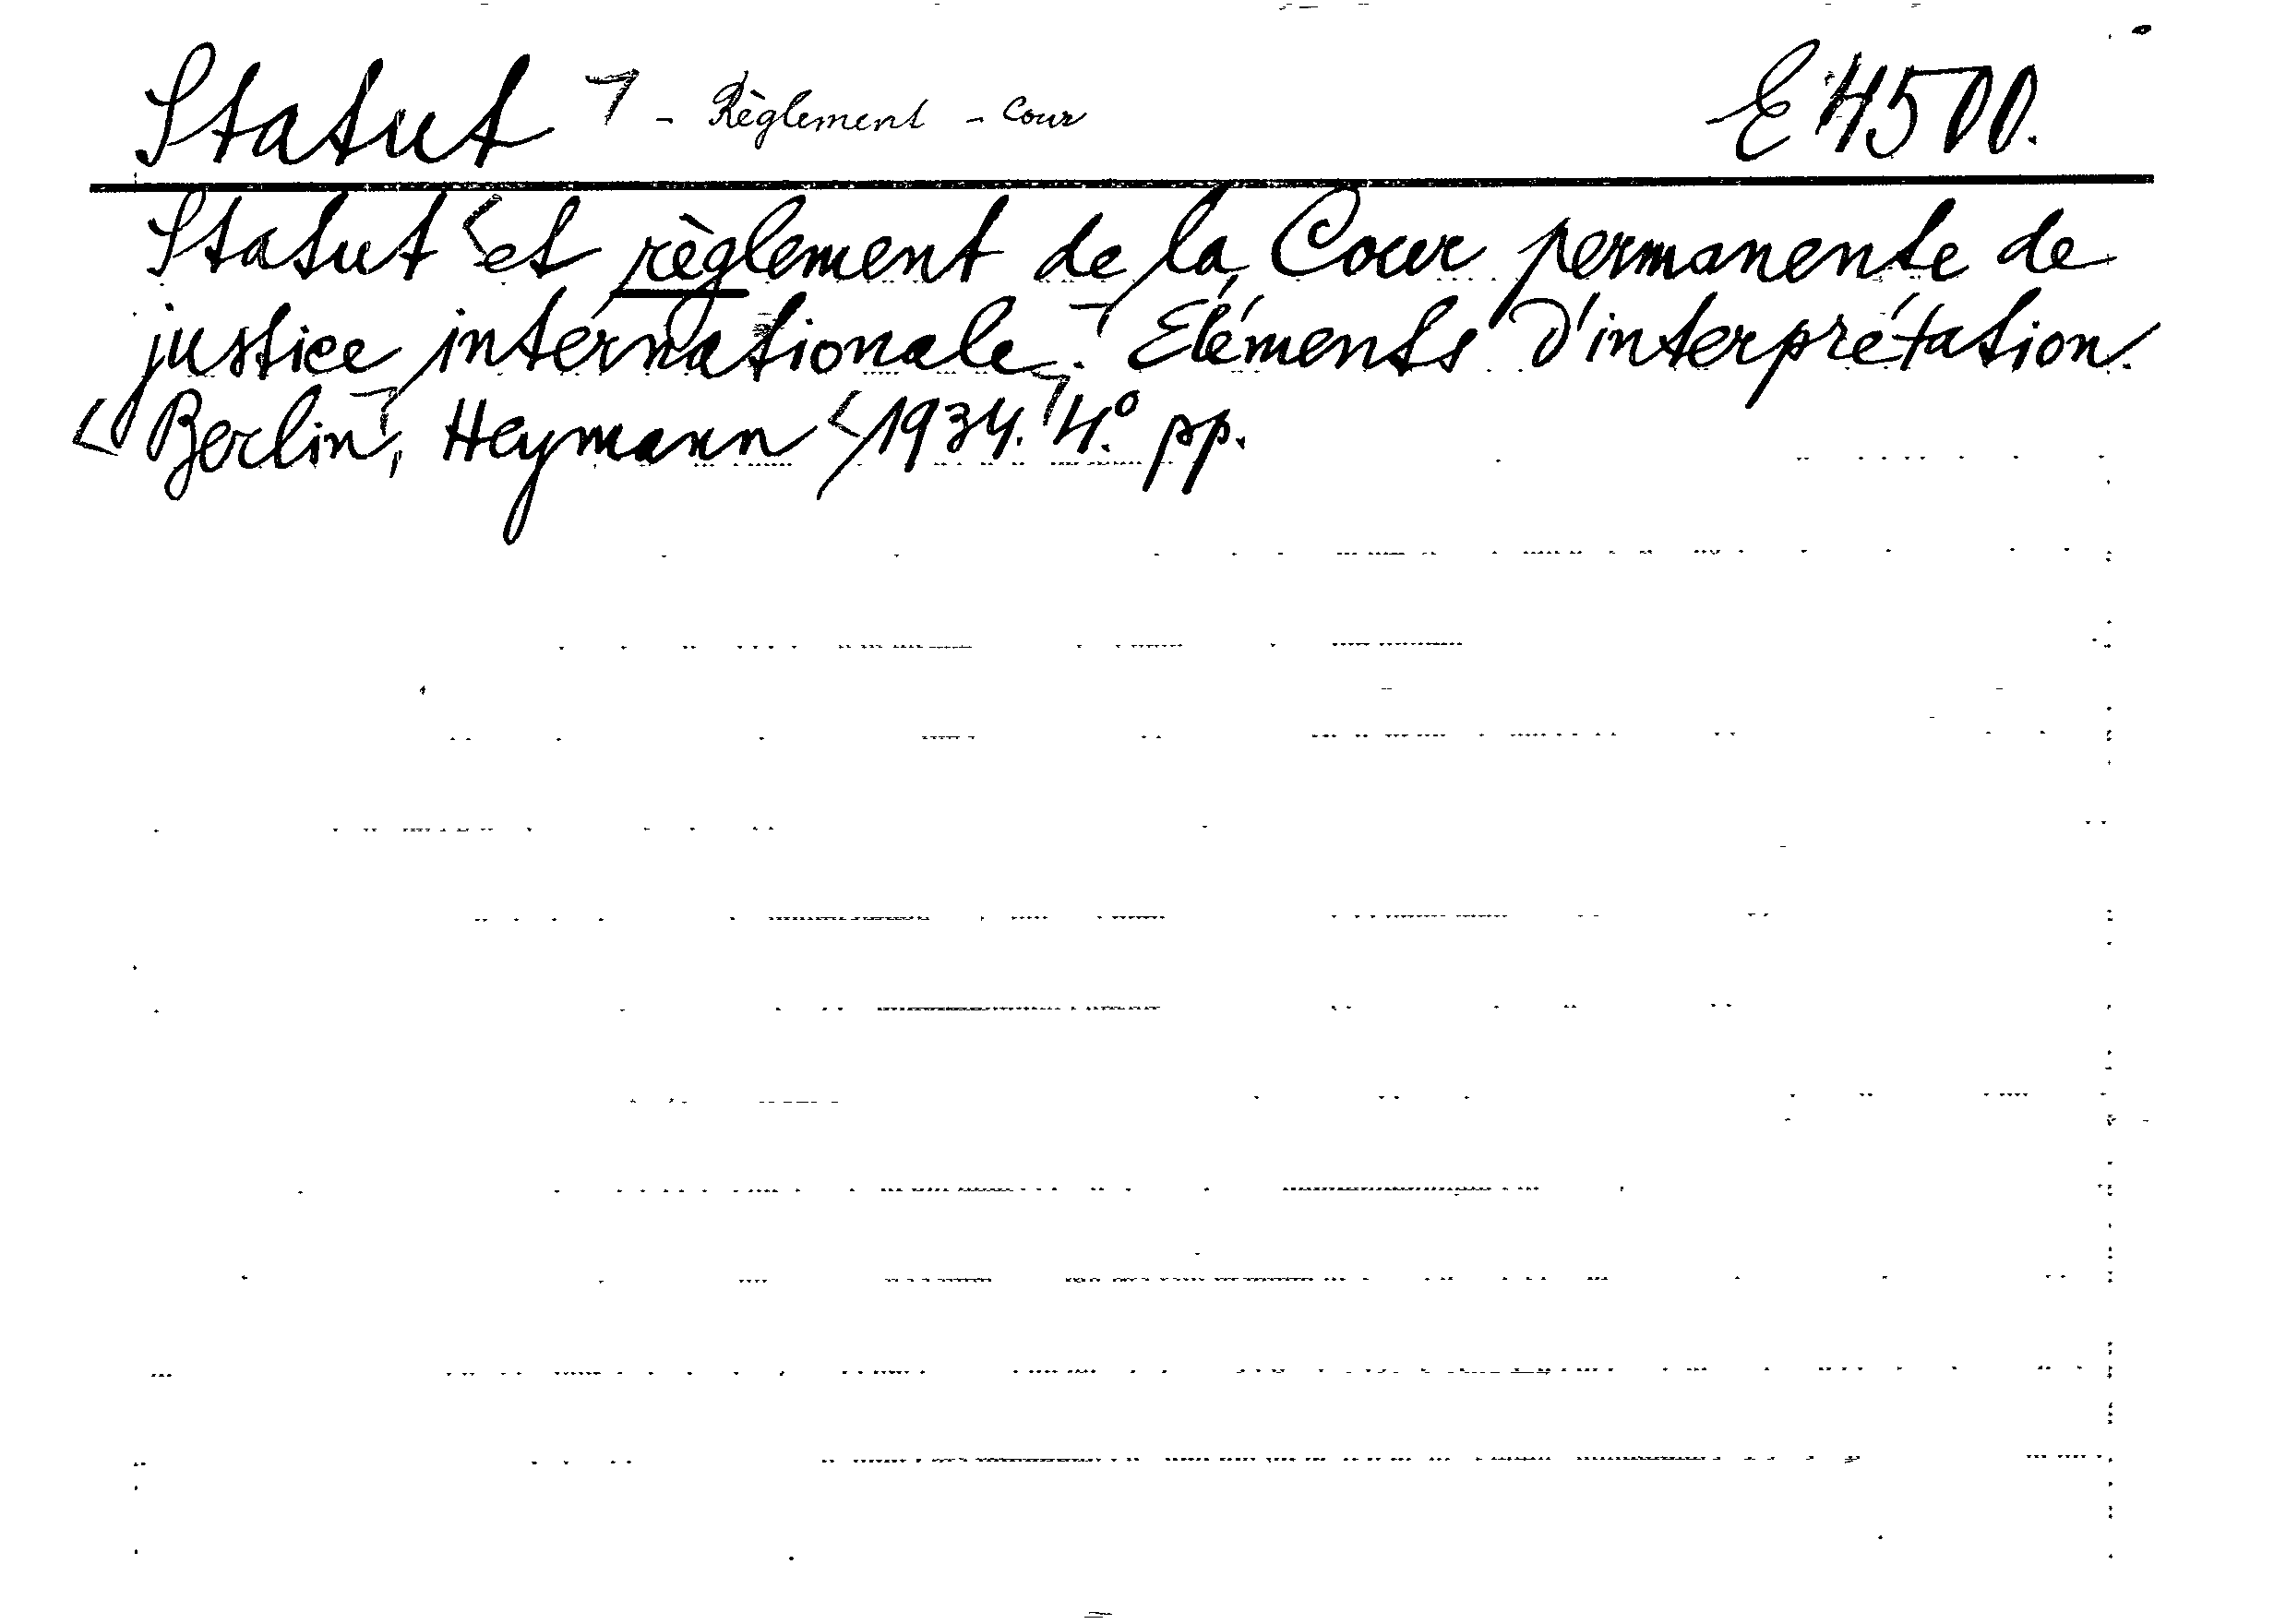 Statut - Règlement - Cour E 4500.
Statut et règlement de la Cour permanente de
justice internationale. Eléments d'interprétation.
Berlin, Heymann 1934. 4.º pp.